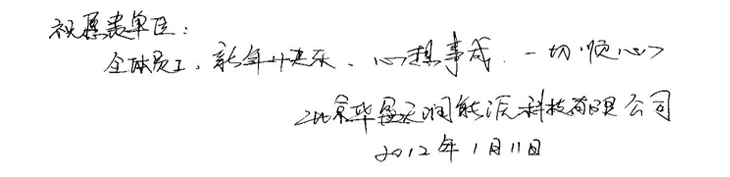 祝愿贵单位：
全体员工、新年快乐、心想事成、一切顺心
北京华盈天润能源科技有限公司
2012年1月11日